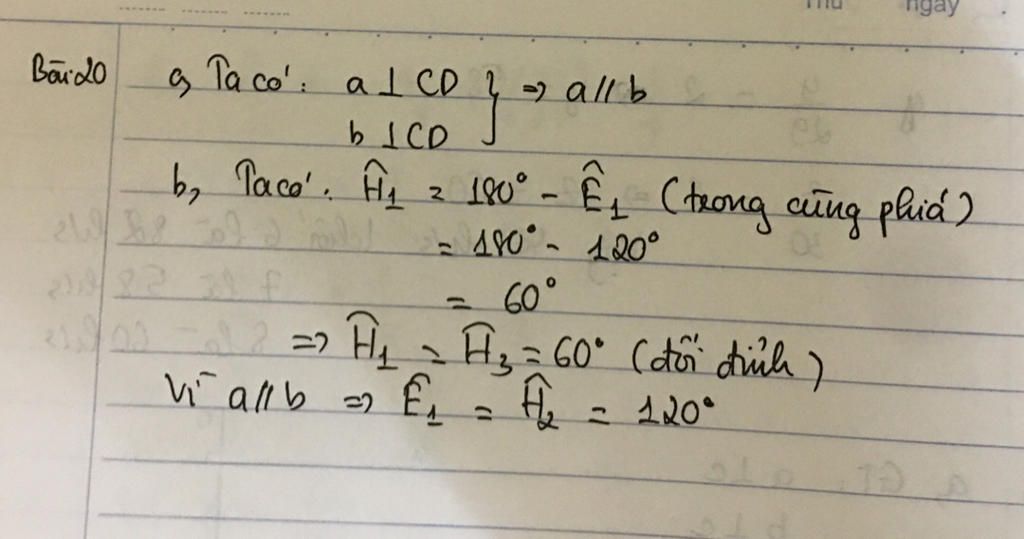 Thứ ngày
Bài 20 a, Ta có: a ⊥ CD } ⇒ a // b
b ⊥ CD
b, Ta có: Ĥ₁ = 180° - Ê₁ (trong cùng phiá)
= 180° - 120°
= 60°
⇒ Ĥ₁ = Ĥ₃ = 60° (đối đỉnh)
Vì a // b ⇒ Ê₁ = Ĥ₂ = 120°